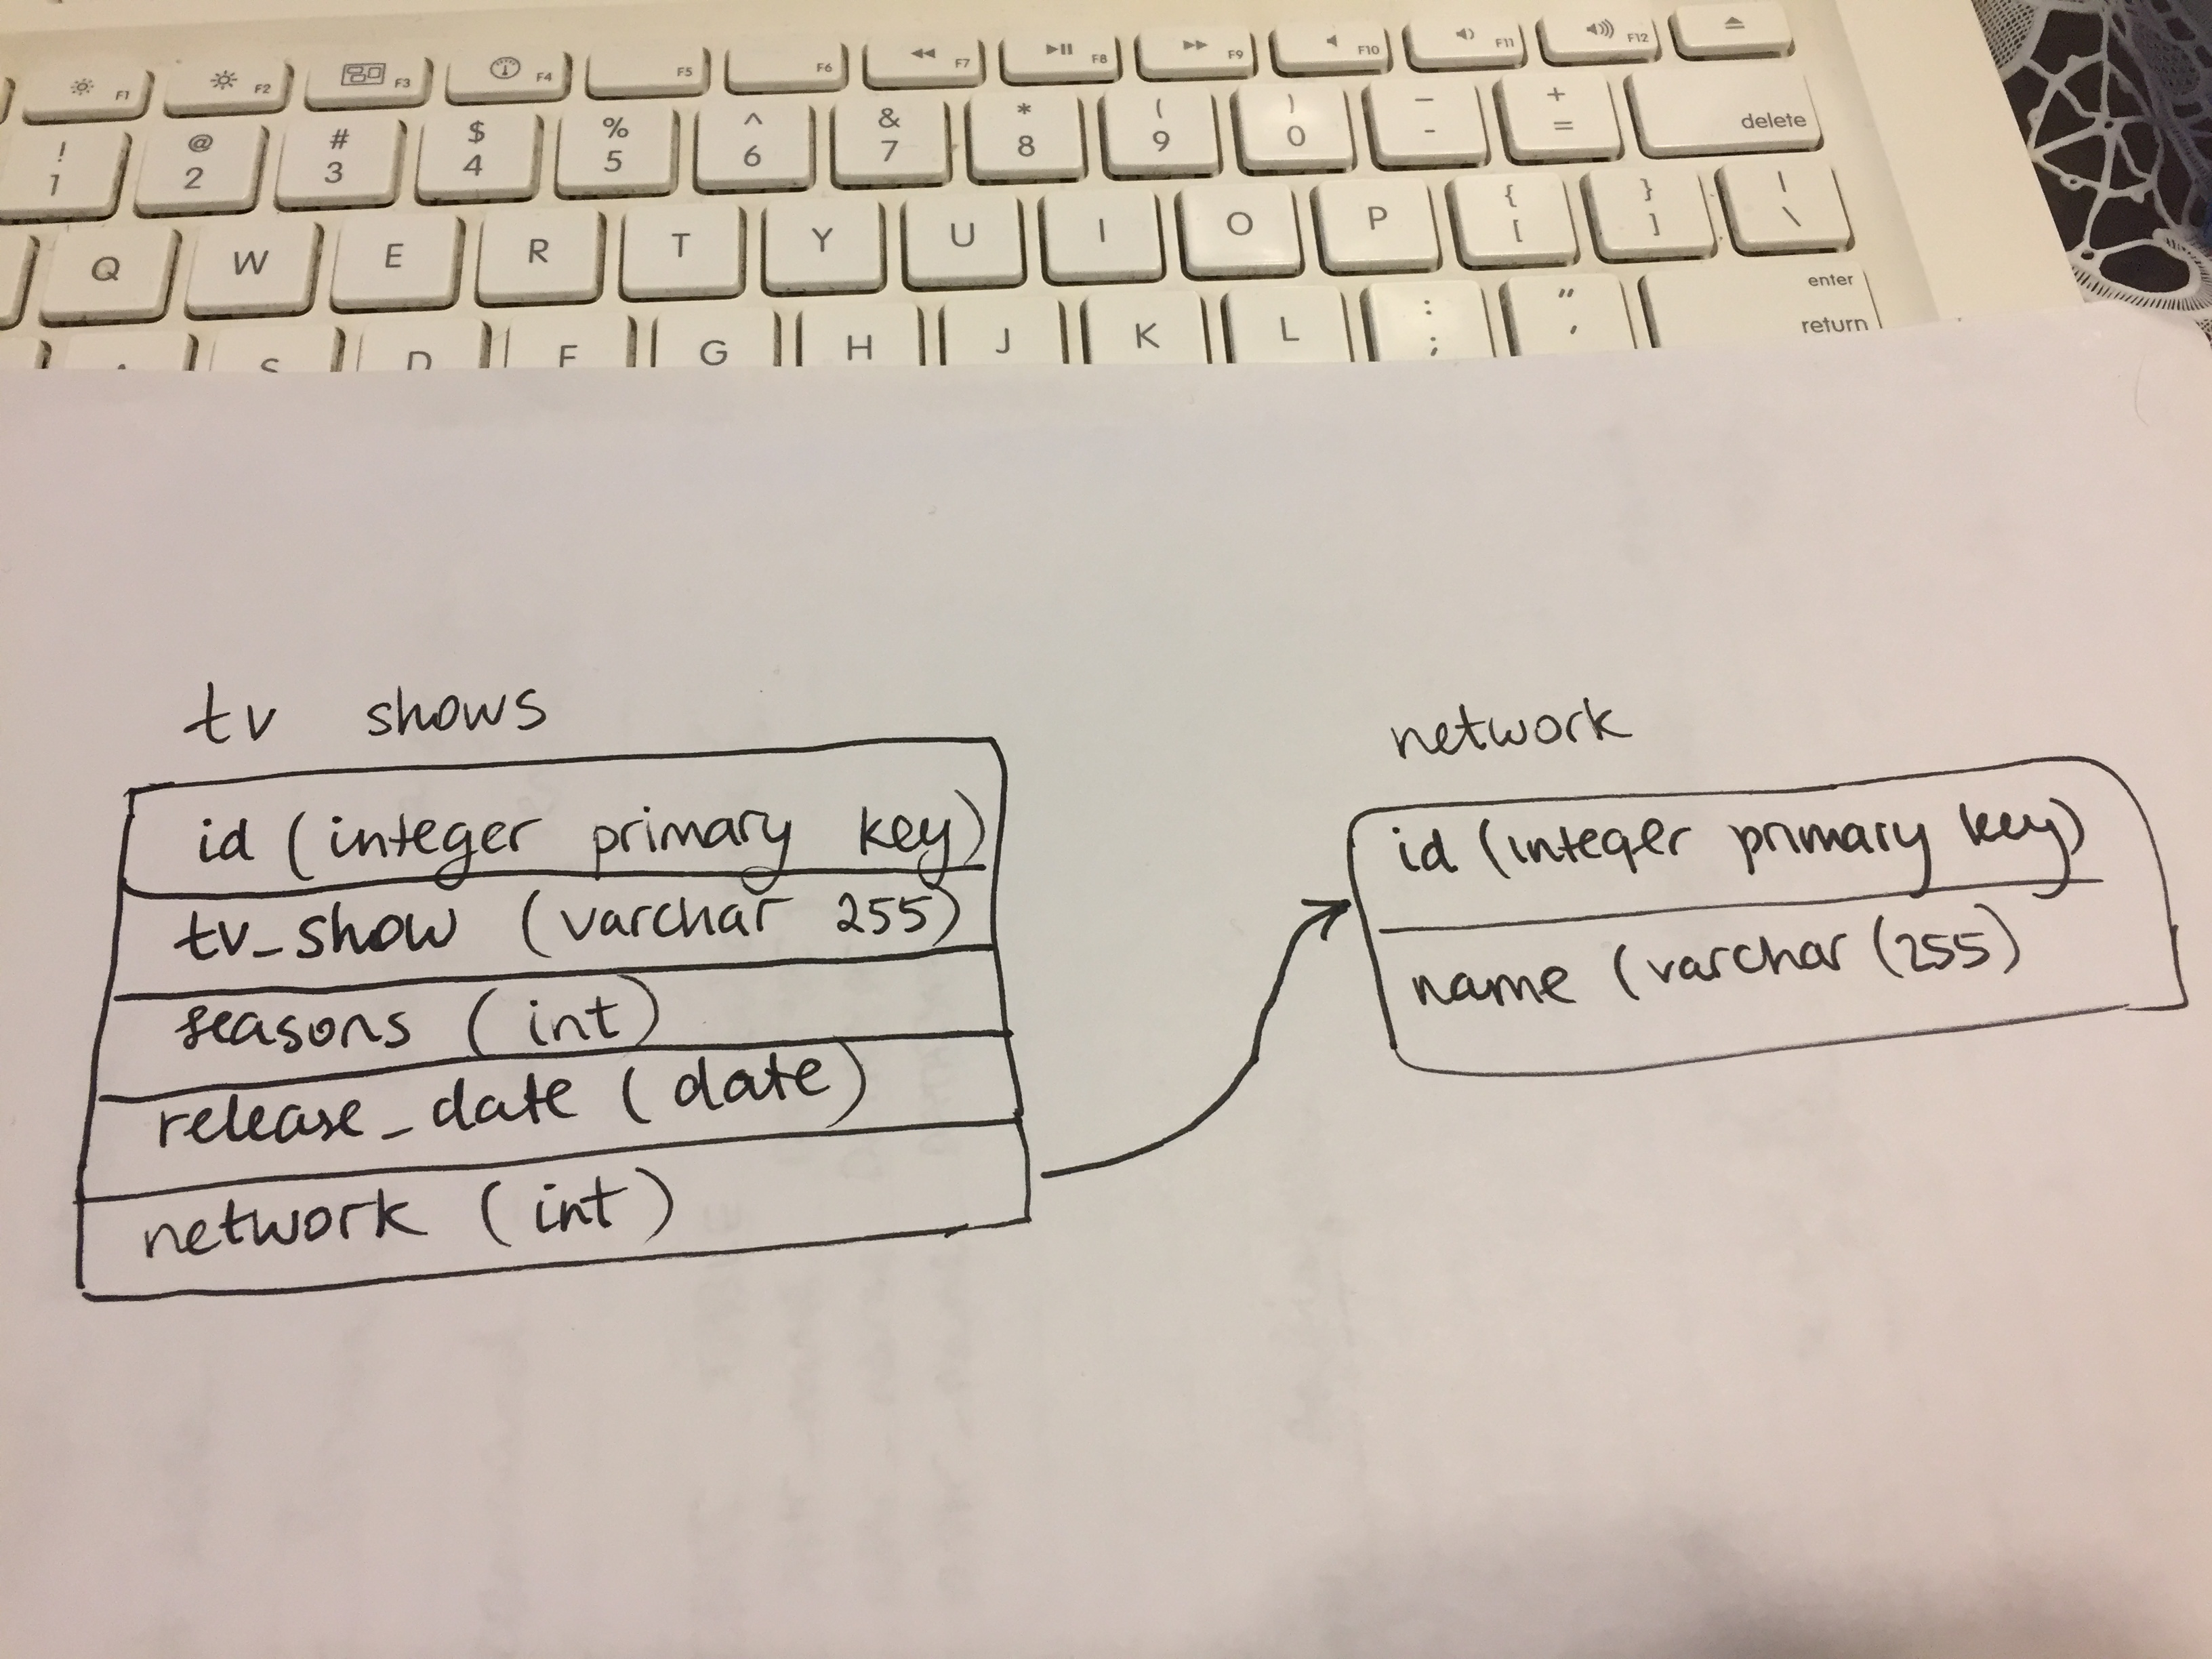 F1 F2 F3 F4 F5 F6 F7 F8 F9 F10 F11 F12
! @ # $ % ^ & * ( ) _ +
1 2 3 4 5 6 7 8 9 0 - = delete
Q W E R T Y U I O P { [ } ] | \
enter
S D F G H J K L : ; " ' return
tv shows
id (integer primary key)
tv_show (varchar 255)
seasons (int)
release_date (date)
network (int)
network
id (integer primary key)
name (varchar (255)